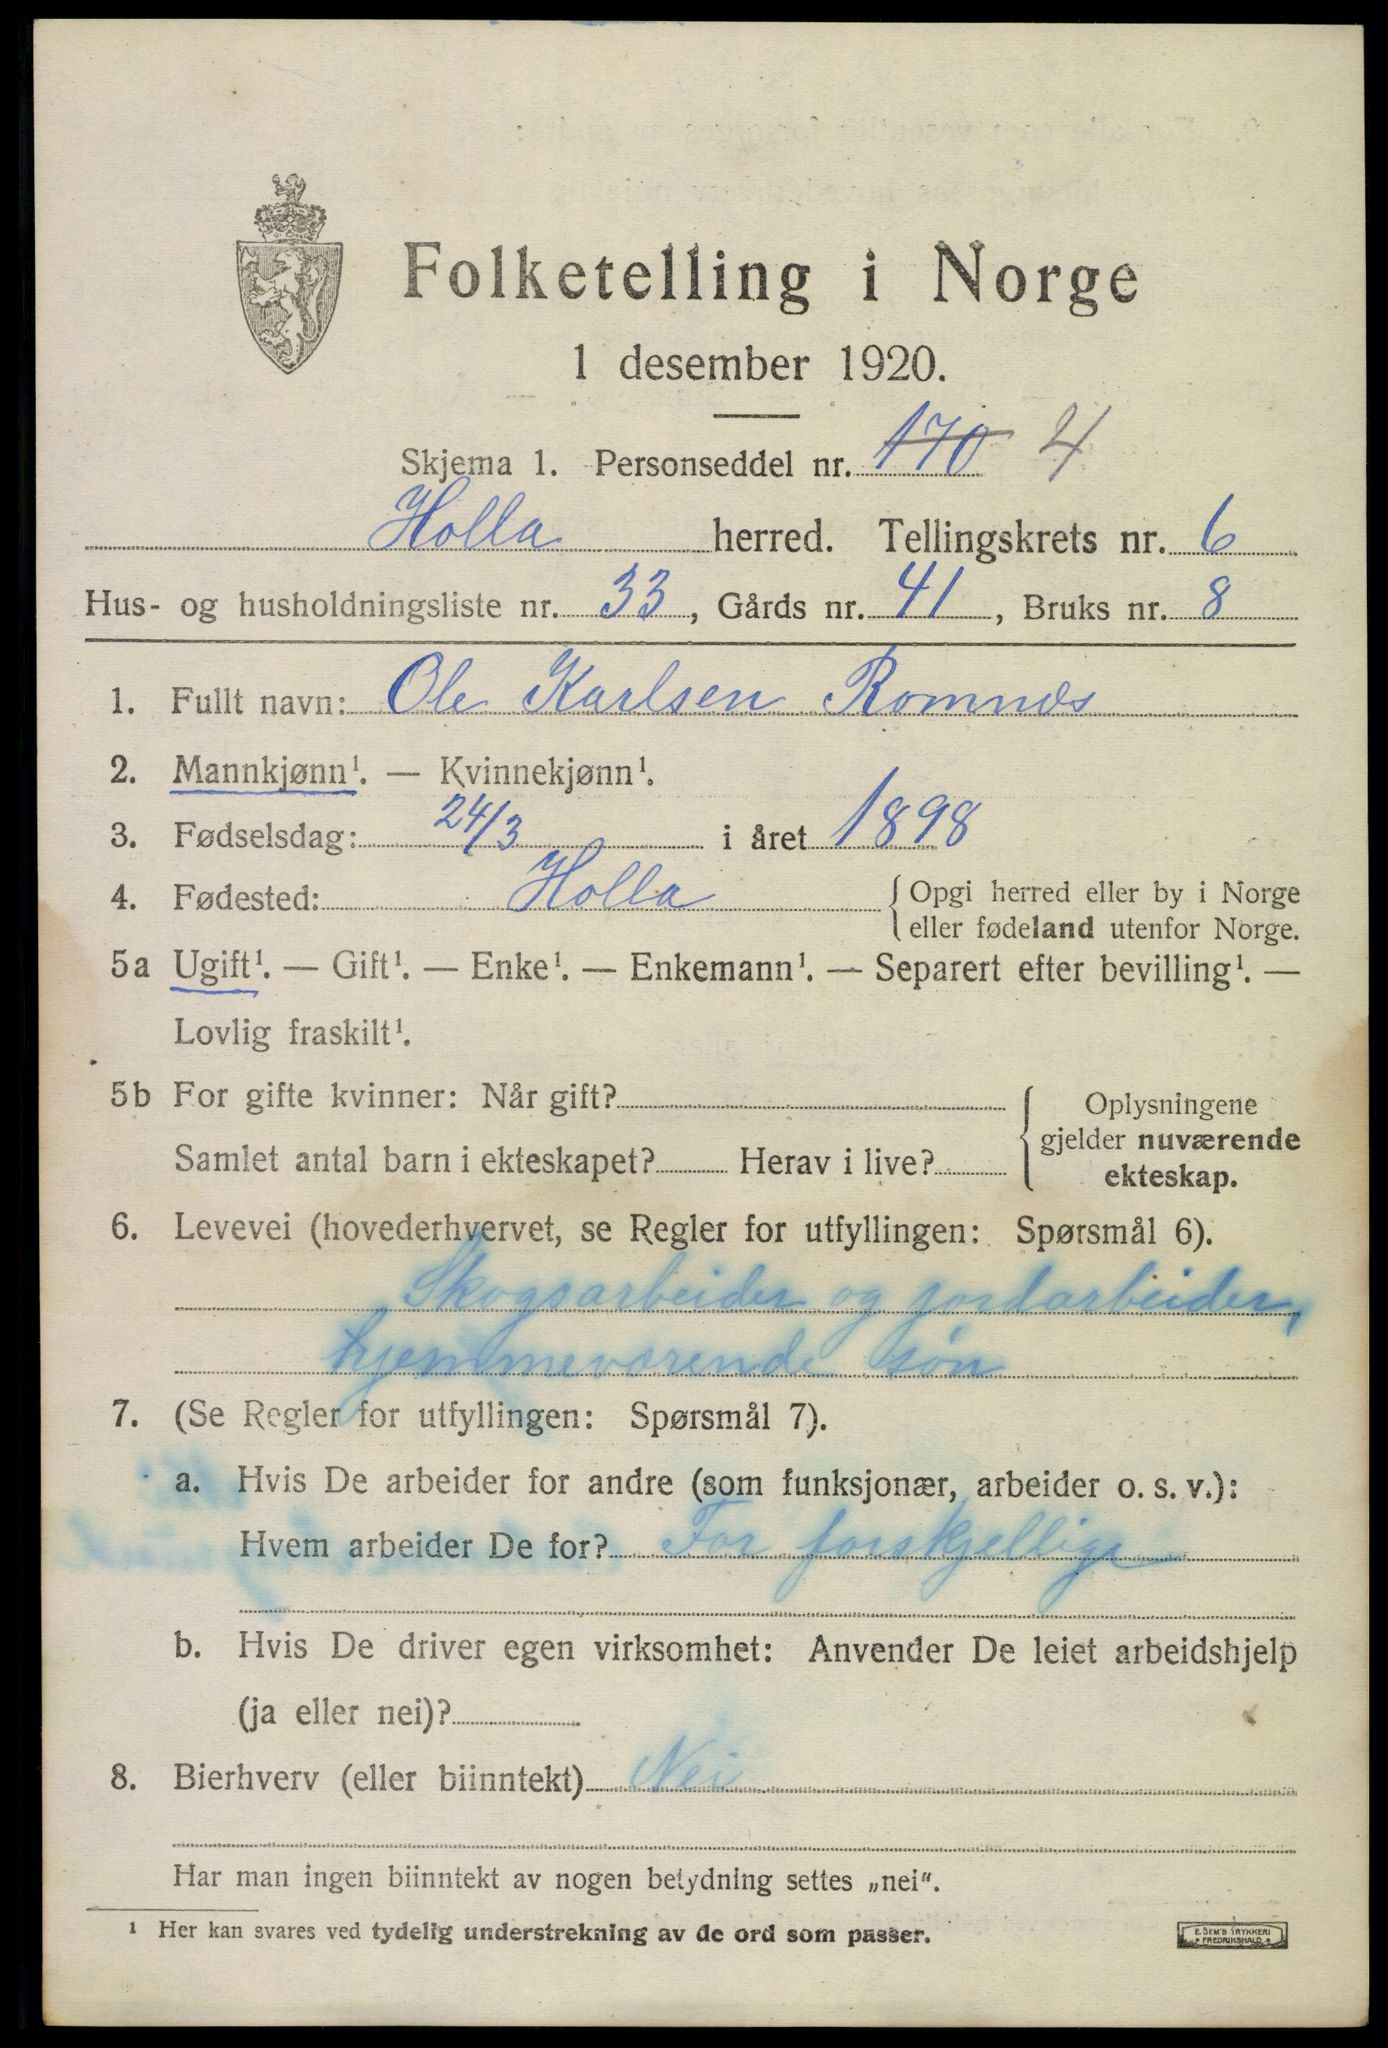 Folketelling i Norge
1 desember 1920.
Skjema 1. Personseddel nr. 170 4
Holla herred. Tellingskrets nr. 6
Hus- og husholdningsliste nr. 33, Gårds nr. 41, Bruks nr. 8
1. Fullt navn: Ole Karlsen Romnæs
2. Mannkjønn¹. — Kvinnekjønn¹.
3. Fødselsdag: 24/3 i året 1898
4. Fødested: Holla { Opgi herred eller by i Norge
eller fødeland utenfor Norge.
5a Ugift¹. — Gift¹. — Enke¹. — Enkemann¹. — Separert efter bevilling¹. —
Lovlig fraskilt¹.
5b For gifte kvinner: Når gift? { Oplysningene
gjelder nuværende
Samlet antal barn i ekteskapet? Herav i live? ekteskap.
6. Levevei (hovederhvervet, se Regler for utfyllingen: Spørsmål 6).
Skogsarbeider og jordarbeider,
hjemmeværende søn
7. (Se Regler for utfyllingen: Spørsmål 7).
a. Hvis De arbeider for andre (som funksjonær, arbeider o. s. v.):
Hvem arbeider De for? For forskjellige
b. Hvis De driver egen virksomhet: Anvender De leiet arbeidshjelp
(ja eller nei)?
8. Bierhverv (eller biinntekt) Nei
Har man ingen biinntekt av nogen betydning settes „nei".
¹ Her kan svares ved tydelig understrekning av de ord som passer.
E. SEM'S TRYKKERI
FREDRIKSHALD